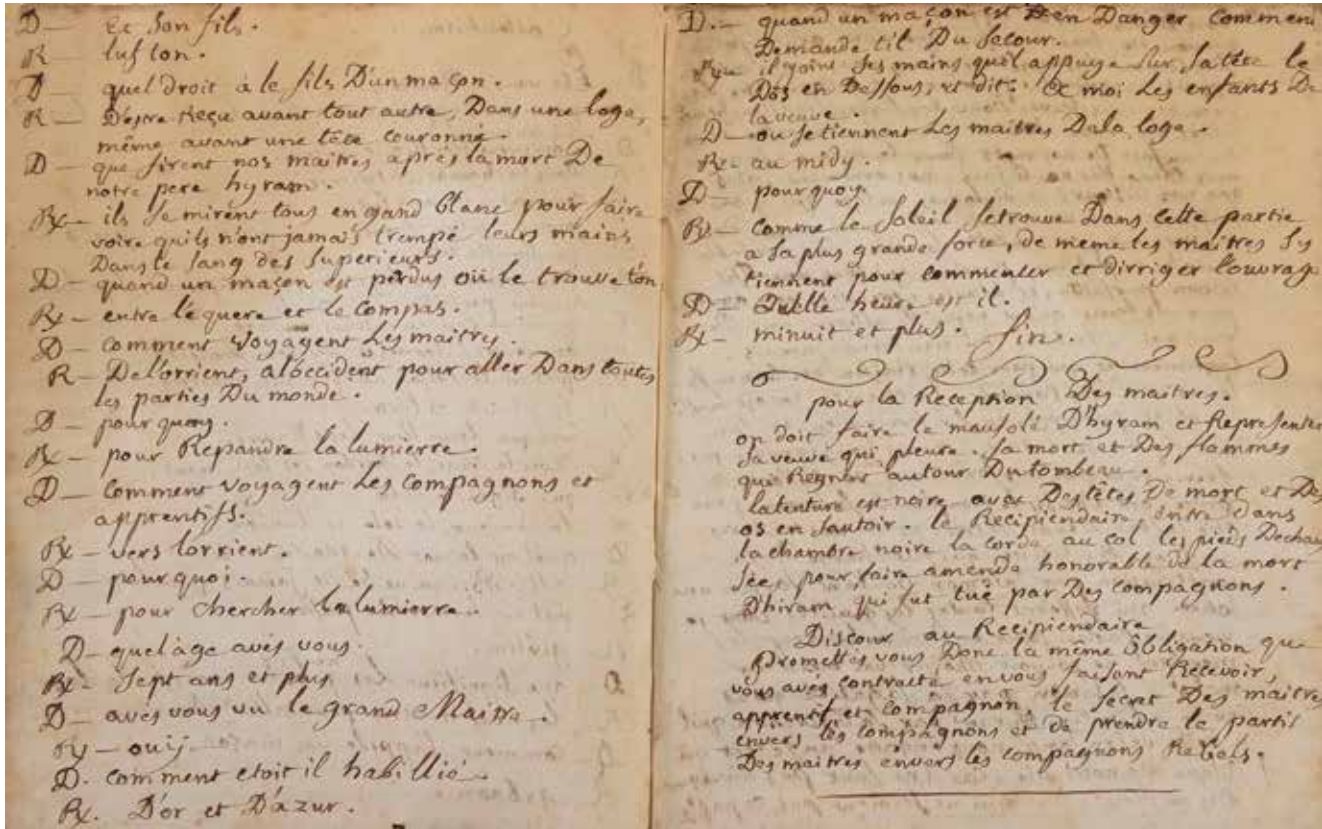 D — Et Son fils.
R — lufton.
D — quel droit à le fils D'un maçon.
R — D'estre Reçu avant tout autre, Dans une loge,
même avant une tête couronné.
D — que firent nos maitres après la mort De
notre pere hyram.
Rx — ils se mirent tous en gand blanc pour faire
voire quils n'ont jamais trempé leurs mains
Dans le sang des superieurs.
D — quand un maçon est perdus où le trouve t'on
Rx — entre l'équere et le compas.
D — comment voyagent Les maitres.
R — De l'orrient, a l'occident pour aller Dans toutes
les parties Du monde.
D — pourquoy.
Rx — pour Repandre la lumierre.
D — comment voyagent Les compagnons et
apprentifs.
Rx — vers lorrient.
D — pourquoi.
Rx — pour chercher la lumierre.
D — quel âge avés vous.
Rx — Sept ans et plus
D — avés vous vu le grand Maitre.
Rx — ouij
D. comment etoit il habillié.
Rx. D'or et D'azur.
D. — quand un maçon est en Danger comment
Demande til Du Secour.
Rx — il joint ses mains qu'il appuye sur sa tête le
Dos en Dessous, et dit: a moi Les enfants De
la veuve.
D — ou se tiennent Les maitres Dela loge.
Rx — au midy.
D — pourquoy.
Rx — comme le Soleil se trouve Dans cette partie
a sa plus grande force, de meme les maitres S'y
tiennent pour commenter et dirriger l'ouvrage
D — Quelle heure est il.
Rx — minuit et plus. fin.
pour la Reception Des maitres.
on doit faire le mausolé D'hyram et Representer
sa veuve qui pleure sa mort et Des flammes
qui Regnent autour Du tombeau.
la tenture est noire avec Des têtes De mort et Des
os en sautoir. le Recipiendaire entre dans
la chambre noire la corde au col les pieds Dechau
sées pour faire amende honorable de la mort
D'hiram qui fut tué par Des compagnons.
Discour au Recipiendaire
Promettés vous Donc la même Obligation que
vous avés contracté en vous faisant Recevoir,
apprentif et compagnon, le secret Des maitres
envers les compagnons et de prendre le parti
Des maitres envers les compagnons Rebels.